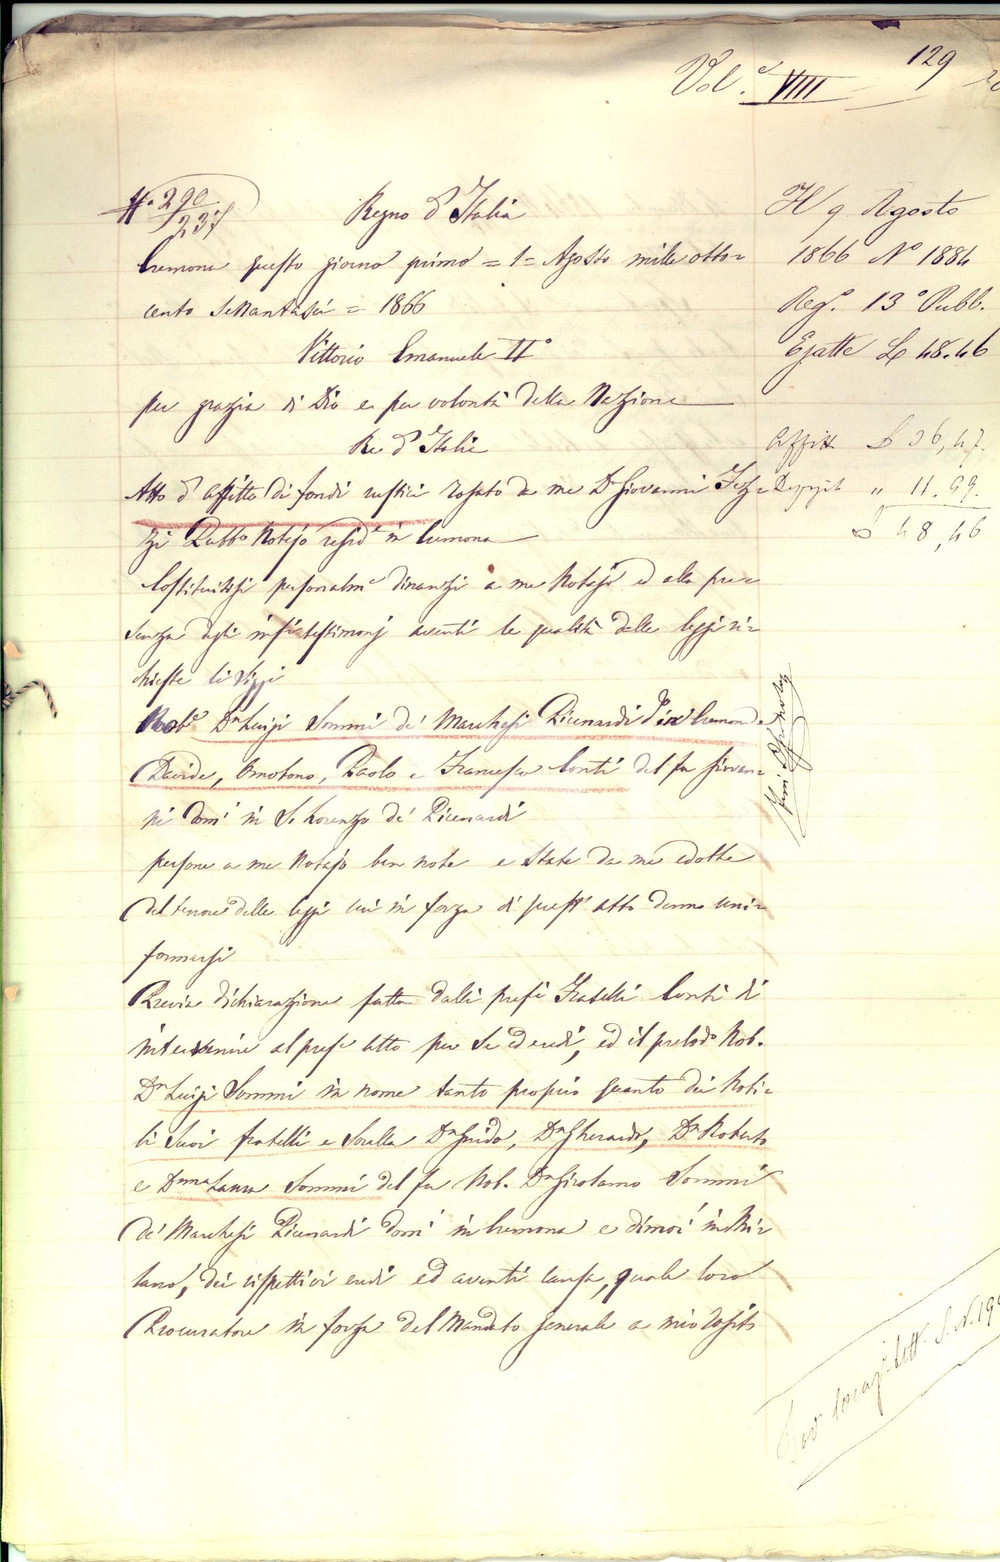 Vol.e VIII
129
N.o 290
237
Regno d'Italia
Cremona questo giorno primo = 1 = Agosto mille otto=
cento Sessantasei = 1866
Vittorio Emanuele II°
per grazia di Dio e per volontà della Nazione
Re d'Italia
Atto d'affitto di fondi rustici rogato da me Dr Giovanni
Pubb.o Notajo resid.e in Cremona
Costituitisi personalm.e dinanzi a me Notajo ed alla pre=
senza degli infri testimonj aventi le qualità dalle leggi ri=
chieste li Sig.i
Nob.e Dn Luigi Sommi de' Marchesi Picenardi di Cremona
Davide, Omobono, Paolo e Francesco Conti del fu Giovan=
ni dom.i in S. Lorenzo de' Picenardi
persone a me Notajo ben note e state da me edotte
del tenore delle leggi cui in forza di quest' atto denno uni=
formarsi
Previa dichiarazione fatta dalli pref.i Fratelli Conti di
intervenire al pres.e atto per se ed eredi, ed il prelod.o Nob.
Dn Luigi Sommi in nome tanto proprio quanto dei Nobi=
li Suoi fratelli e Sorella Dn Guido, Dn Gherardo, Dn Roberto
e Dnna Laura Sommi del fu Nob. Dn Girolamo Sommi
de' Marchesi Picenardi dom.i in Cremona e dimor.i in Mi=
lano, dei rispettivi eredi ed aventi causa, quale loro
Procuratore in forza del Mandato Generale a mio rogito
Il 9 Agosto
1866 N° 1884
Reg.o 13° Pubb.
Esatte L 48.46
Affitt. L 36,47.
Deposit. " 11.99.
L 48,46